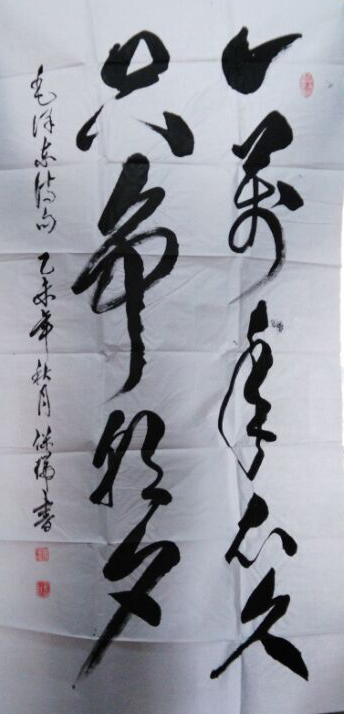 一萬年太久
只争朝夕
毛泽东诗句 乙未年秋月 瑞書